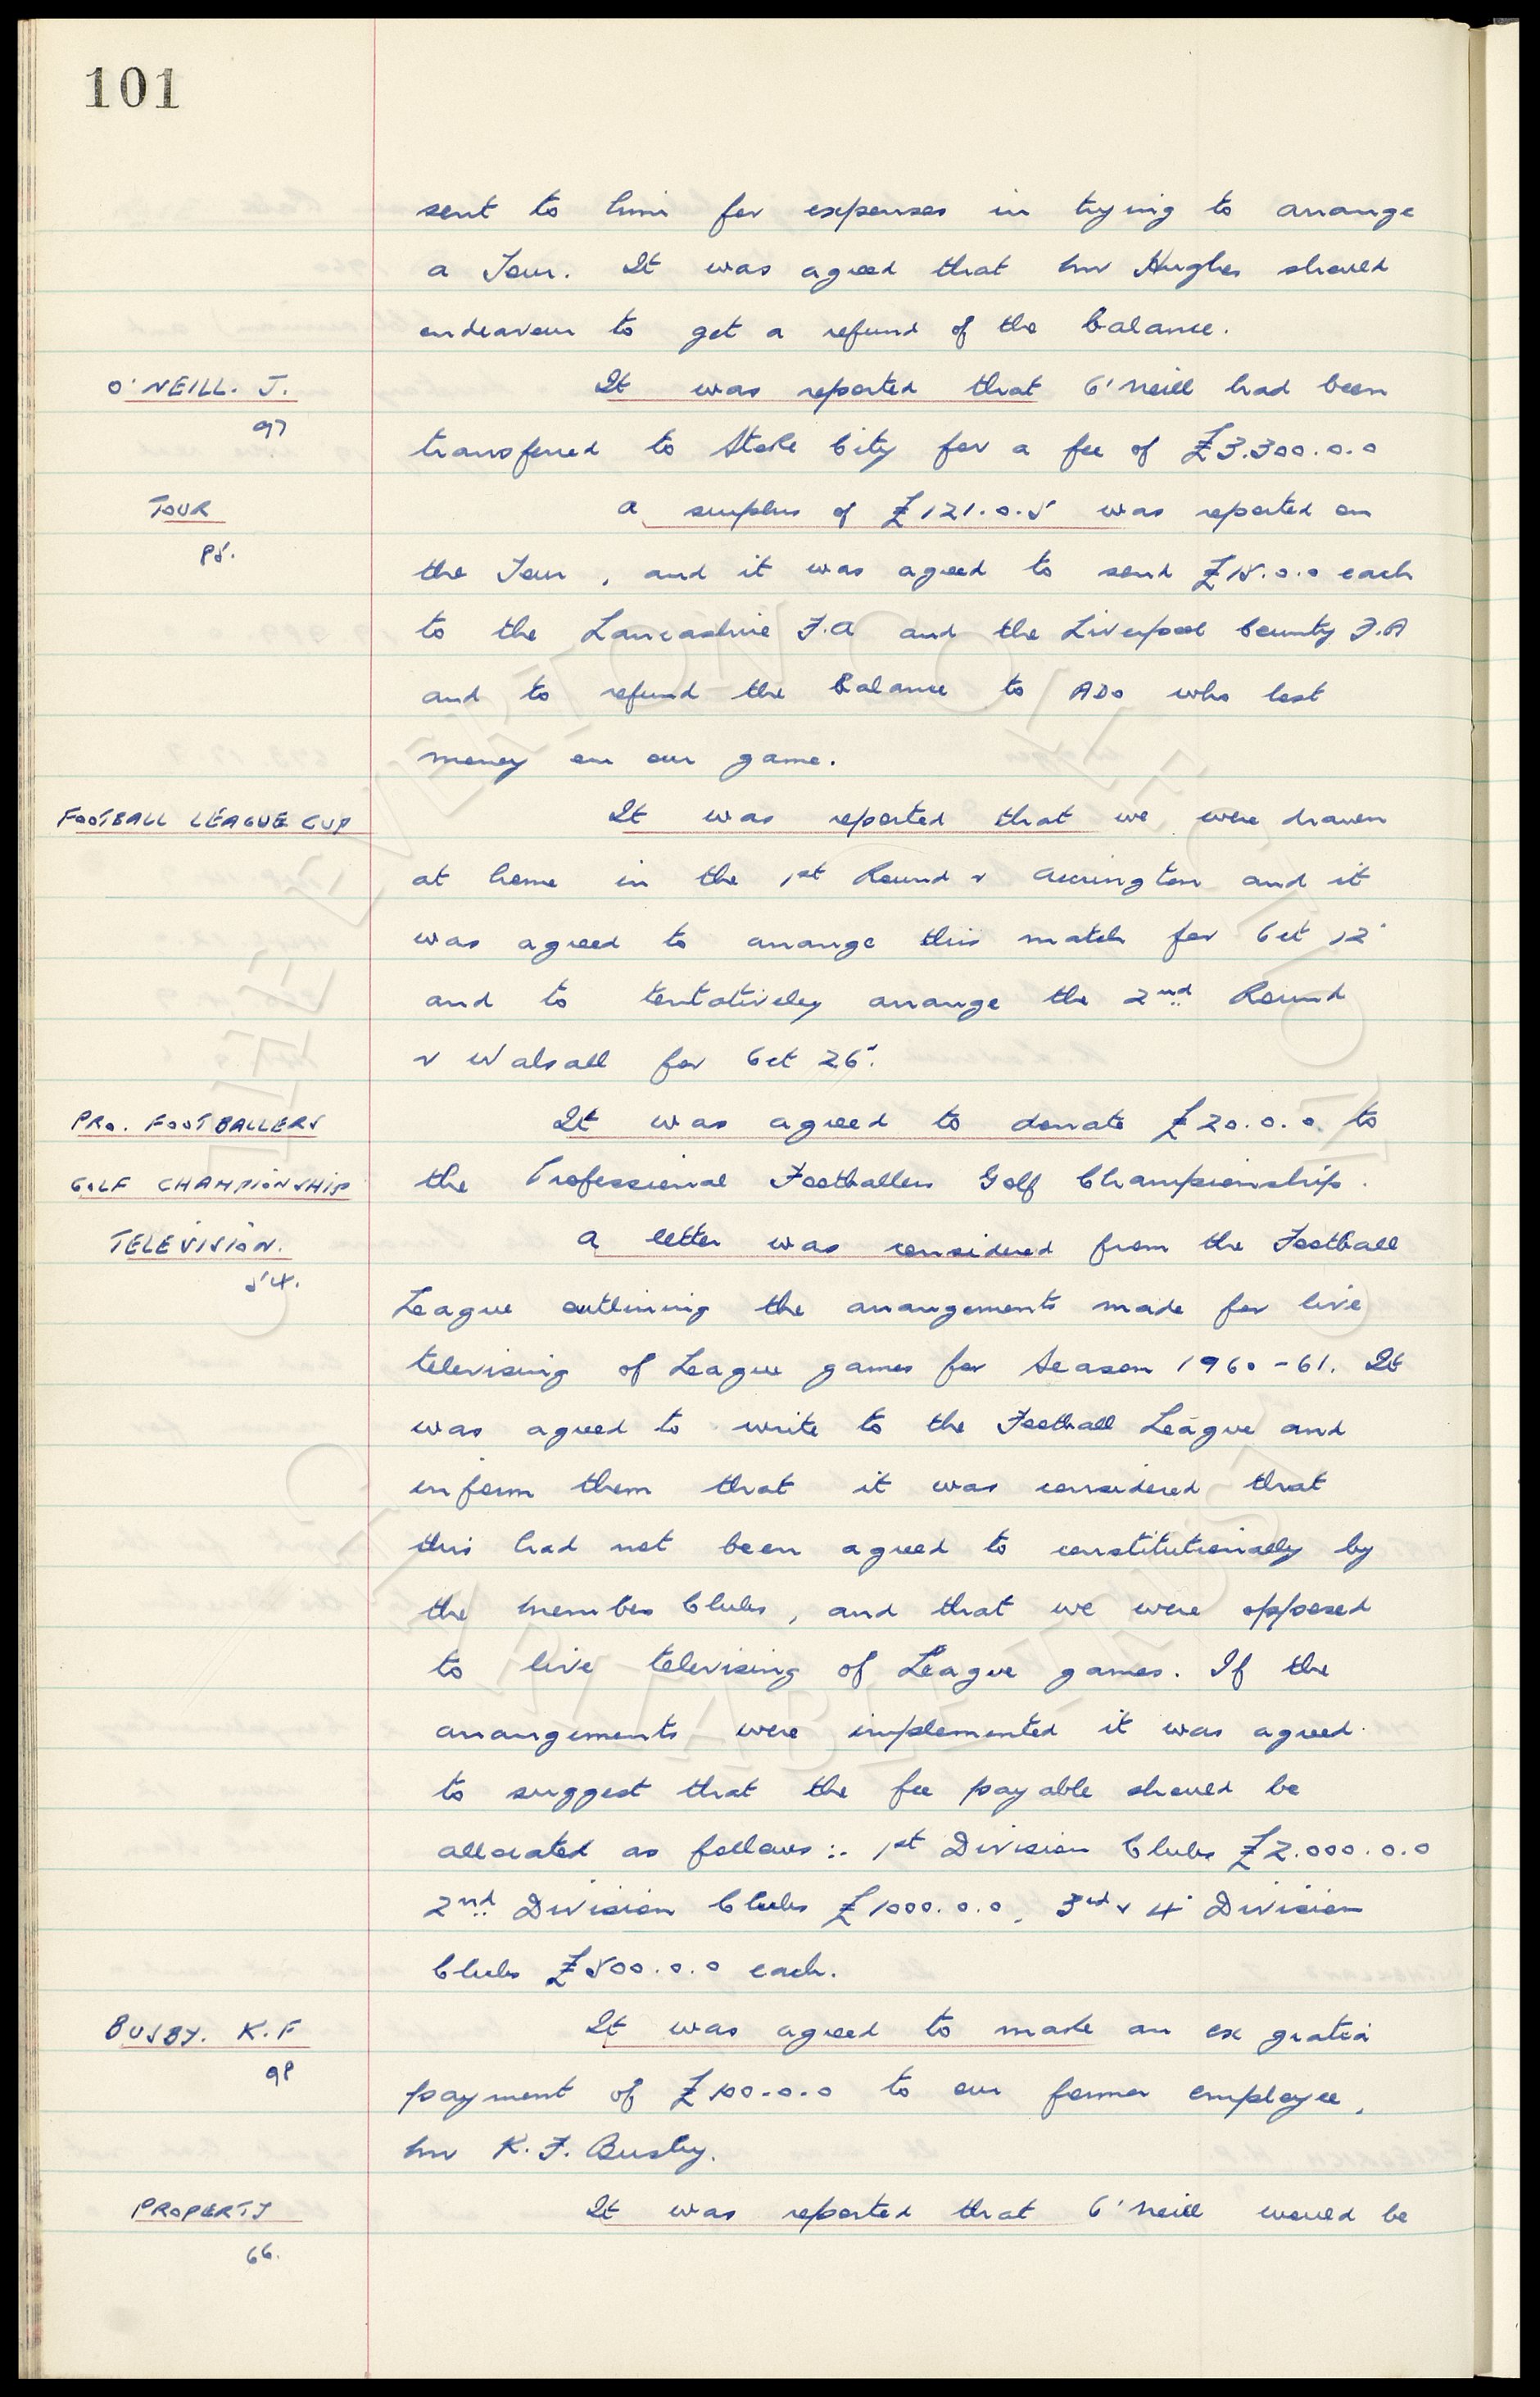 101
sent to him for expenses in trying to arrange
a Tour. It was agreed that Mr Hughes should
endeavour to get a refund of the balance.
O'NEILL. J. It was reported that O'Neill had been
97
transferred to Stoke City for a fee of £3.300.0.0
TOUR A surplus of £121.0.5 was reported on
98.
the Tour, and it was agreed to send £15.0.0 each
to the Lancashire F.A and the Liverpool County F.A
and to refund the balance to ADO who lost
money on our game.
FOOTBALL LEAGUE CUP It was reported that we were drawn
at home in the 1st Round v Accrington and it
was agreed to arrange this match for Oct 12"
and to tentatively arrange the 2nd Round
v Walsall for Oct 26".
PRO. FOOTBALLERS It was agreed to donate £20.0.0. to
GOLF CHAMPIONSHIP the Professional Footballers Golf Championship.
TELEVISION. A letter was considered from the Football
54.
League outlining the arrangements made for live
televising of League games for Season 1960-61. It
was agreed to write to the Football League and
inform them that it was considered that
this had not been agreed to constitutionally by
the member Clubs, and that we were opposed
to live televising of League games. If the
arrangements were implemented it was agreed
to suggest that the fee payable should be
allocated as follows :- 1st Division Clubs £2.000.0.0
2nd Division Clubs £1000.0.0, 3rd & 4" Division
Clubs £500.0.0 each.
BUSBY. K.F It was agreed to make an ex gratia
98
payment of £100.0.0 to our former employee,
Mr K.F. Busby.
PROPERTY It was reported that O'Neill would be
66.